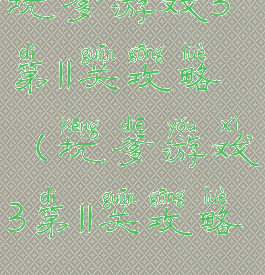 坑爹游戏3
dì guān gōng lüè
第11关攻略
kēng diē yóu xì
(坑爹游戏
dì guān gōng lüè
3第11关攻略